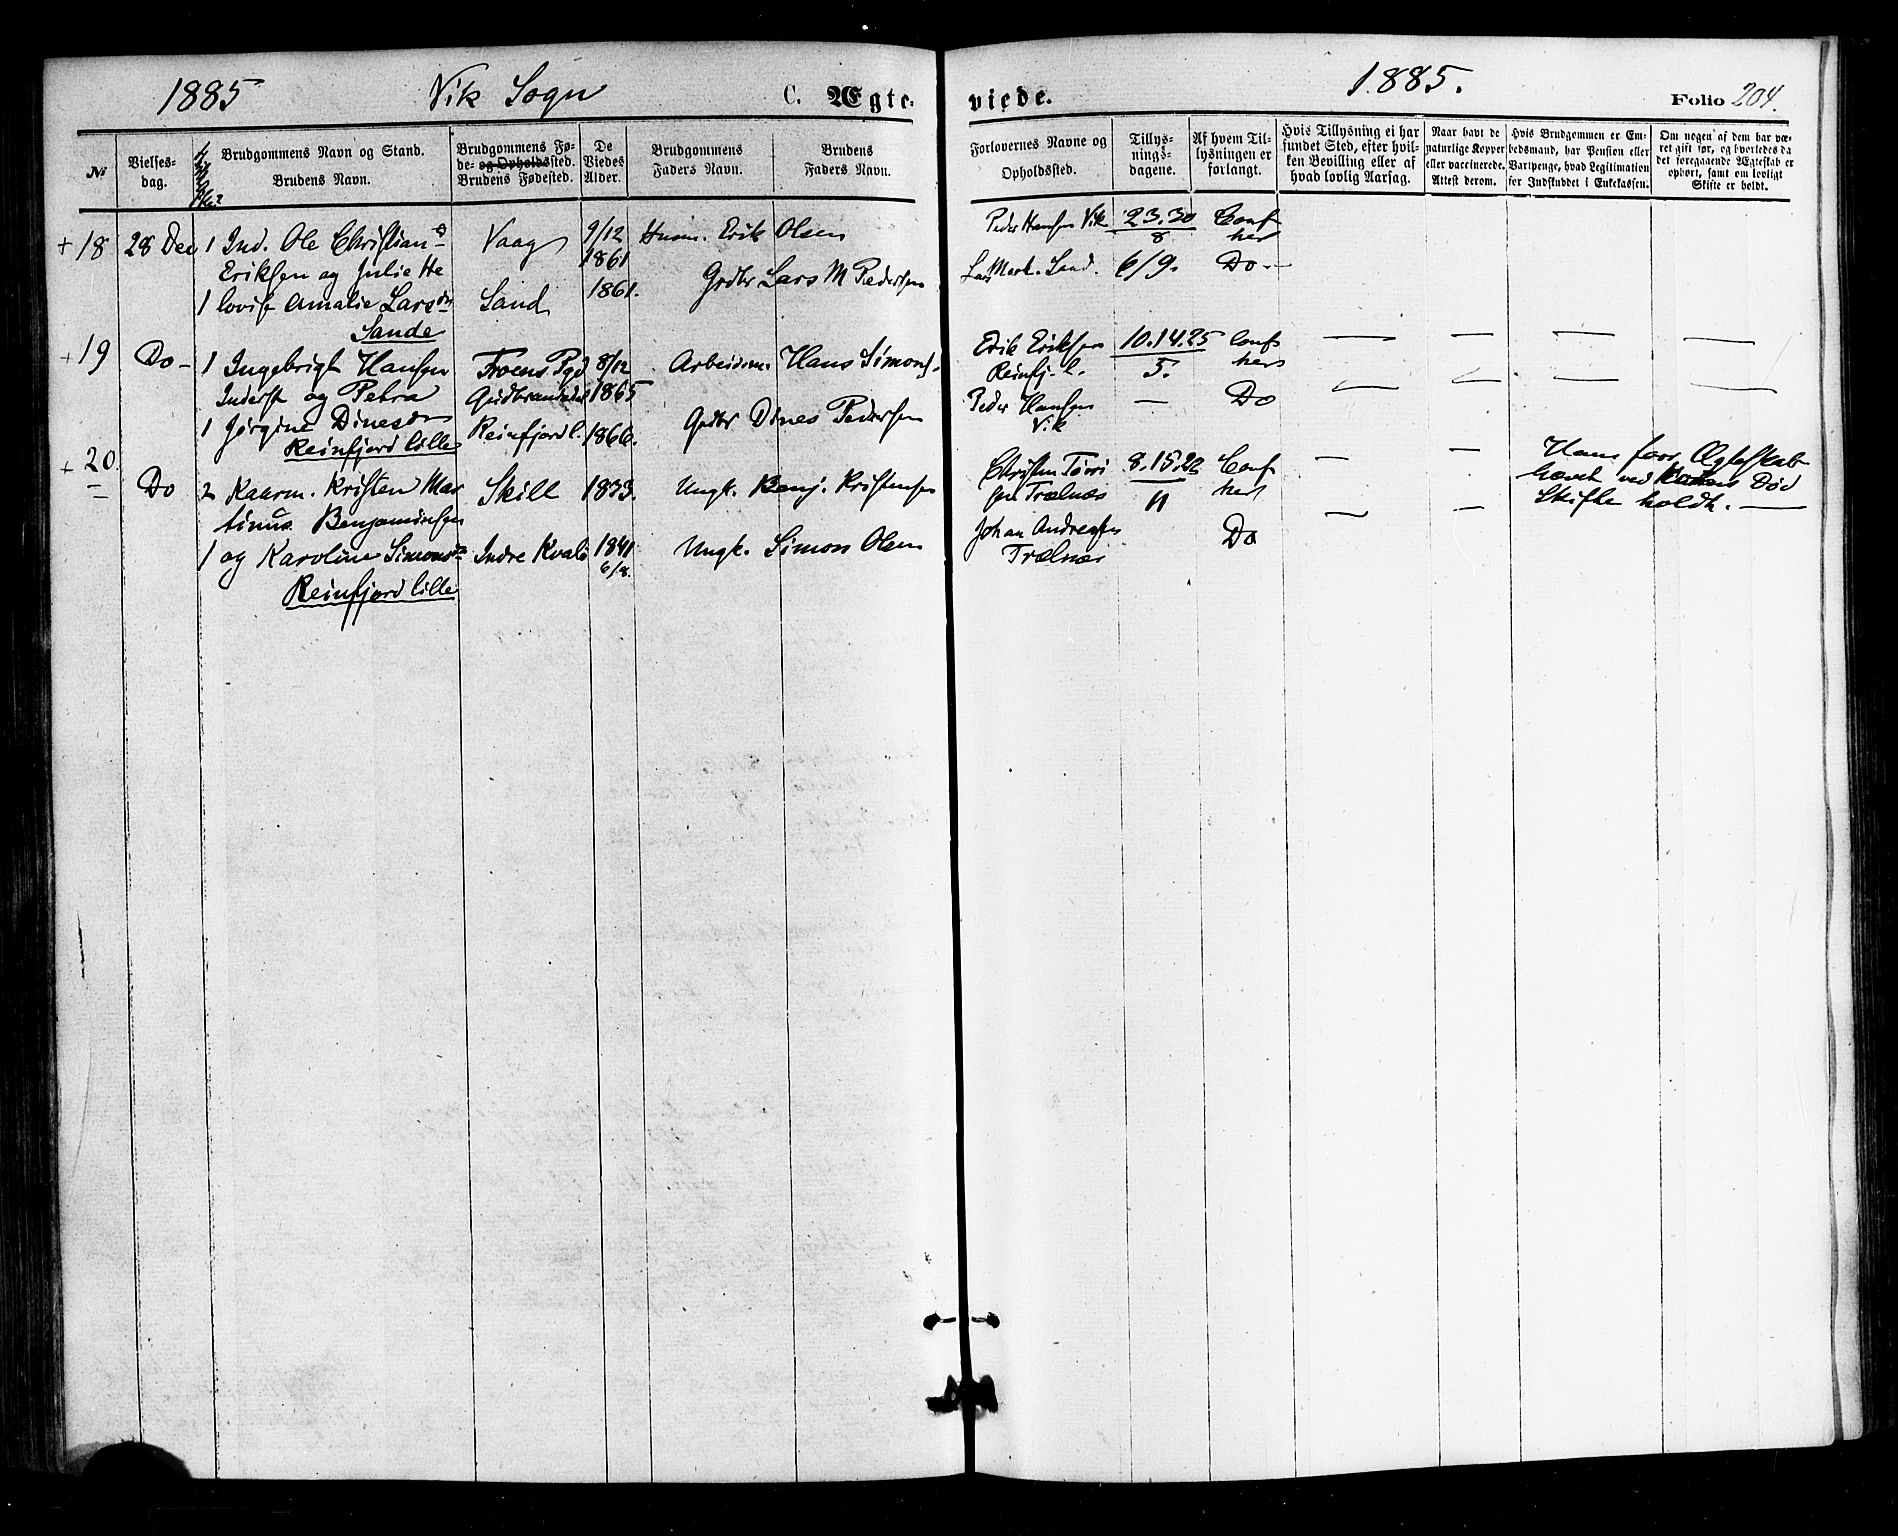 1885 Vik Sogn C. Ægte-
№
Vielses-
dag.
Brudgommens Navn og Stand.
Brudens Navn.
Brudgommens Fø-
de- og Opholdssted.
Brudens Fødested.
De
Viedes
Alder.
Brudgommens
Faders Navn.
Brudens
Faders Navn.
+ 18 28 Dec 1 Ind. Ole Christian Vaag 9/12 Husm. Erik Olsen
Eriksen og Julie He 1861
1 lovise Amalie Larsdn Sand 1861. Grdbr Lars M Pedersen
Sande
+ 19 Do - 1 Ingebrigt Hansen Froens Pgd 8/12 Arbeidsm. Hans Simons.
Inderst og Petra Gudbrandsdal 1865
1 Jørgine Dinesdn Reinfjord l. 1866. Grdbr Dines Pedersen
Reinfjord lille
+ 20
Do 2 Kaarm. Kristen Mar Skille 1833. Ungk. Benj. Kristensen
tinus Benjaminsen
1 og Karoline Simonsdn Indre Kvalø 1841 Ungk. Simon Olsen
6/8.
Reinfjord lille
viede. 1885. Folio 204.
Forlovernes Navne og
Opholdssted.
Tillys-
nings-
dagene.
Af hvem Til-
lysningen er
forlangt.
Hvis Tillysning ei har
fundet Sted, efter hvil-
ken Bevilling eller af
hvad lovlig Aarsag.
Naar havt de
naturlige Kopper
eller vaccinerede.
Attest derom.
Hvis Brudgommen er Em-
bedsmand, har Pension eller
Vartpenge, hvad Legitimation
for Indskuddet i Enkekassen.
Om nogen af dem har væ-
ret gift før, og hvorledes da
det foregaaende Ægteskab er
ophørt, samt om lovligt
Skifte er holdt.
Peder Hansen Vik 23.30 Conf
8 her
Lars Mort. Sand. 6/9. Do. -
Erik Eriksen 10.14.25 Conf
Reinfj. l. 5. her
Peder Hansen — Do
Vik
Christen Torri 8.15.22 Conf
sen Trælnæs 11 her
Johan Andreassen Do
Trælnæs
Hans forr. Ægteskab
hævet ved Konens Død
Skifte holdt. —